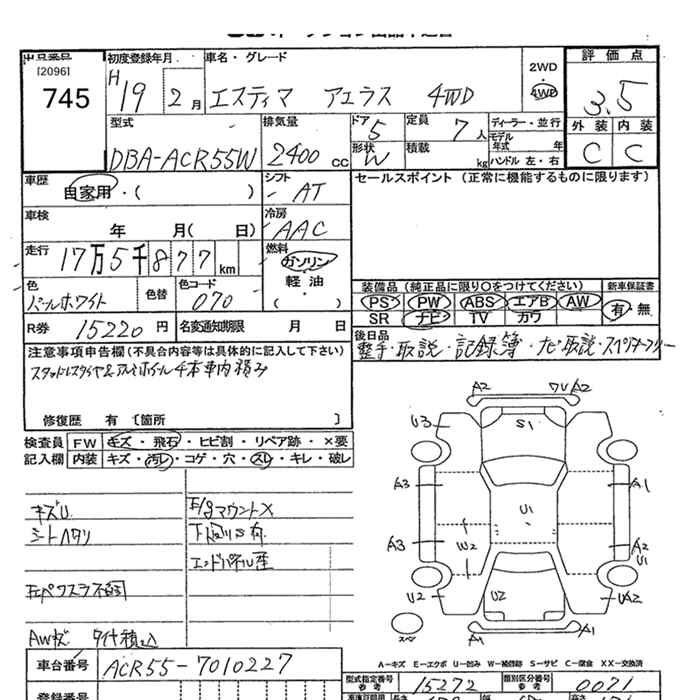 出品番号 初度登録年月 車名・グレード 2WD 評価点
[2096] H 19 2月 エスティマ アエラス 4WD ・ 3.5
745 4WD
型式 排気量 ドア 5 定員 7人 ディーラー・並行 外装 内装
DBA-ACR55W 2400cc 形状 W 積載 kg モデル年式 年 C C
ハンドル 左・右
車歴 シフト セールスポイント (正常に機能するものに限ります)
自家用・( ) AT
車検 冷房
年 月( 日) AAC
走行 17万5千877km 燃料
ガソリン
色 色替 色コード 軽油 装備品 (純正品に限り○をつけてください) 新車保証書
パールホワイト 070 ( ・ ) PS PW ABS エアB AW 有・無
SR ナビ TV カワ
R券 15220円 名変通知期限 月 日 後日品
整手・取説・記録簿・ナビ取説・スペ
注意事項申告欄(不具合内容等は具体的に記入して下さい)
スタッドレスタイヤ&アルミホイール4本車内積み
修復歴 有 [箇所 ]
検査員 FW キズ・飛石・ヒビ割・リペア跡・×要
記入欄 内装 キズ・汚レ・コゲ・穴・スレ・キレ・破レ
キズU E/gマウントX
シートヘタリ 下回りS有
エンドパネル歪
AW
車台番号 ACR55-7010227
登録番号
A2 ワU A2
U3 S1
A3 A1
U1
A3 W2 A2
U1
U2 U2 UA2
スペア A1 A1
A-キズ E-エクボ U-凹み W-補修跡 S-サビ C-腐食 XX-交換済
型式指定番号 参考 15272 類別区分番号 参考 0071